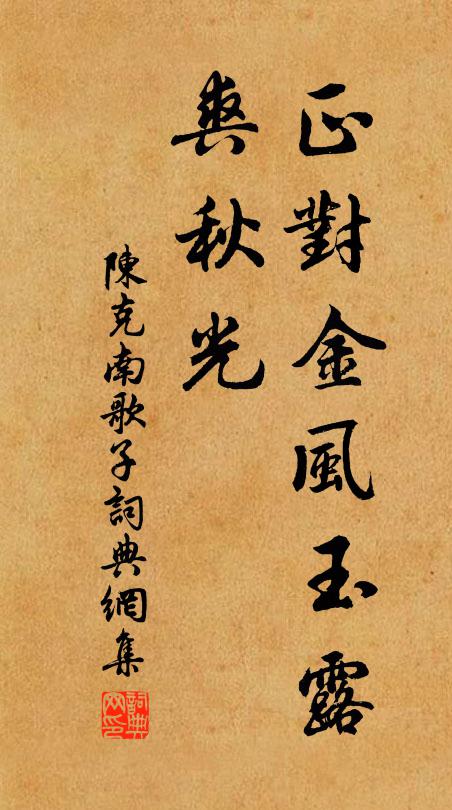 正對金風玉露
爽秋光
陳克南歌子詞典網集
詞典
网印